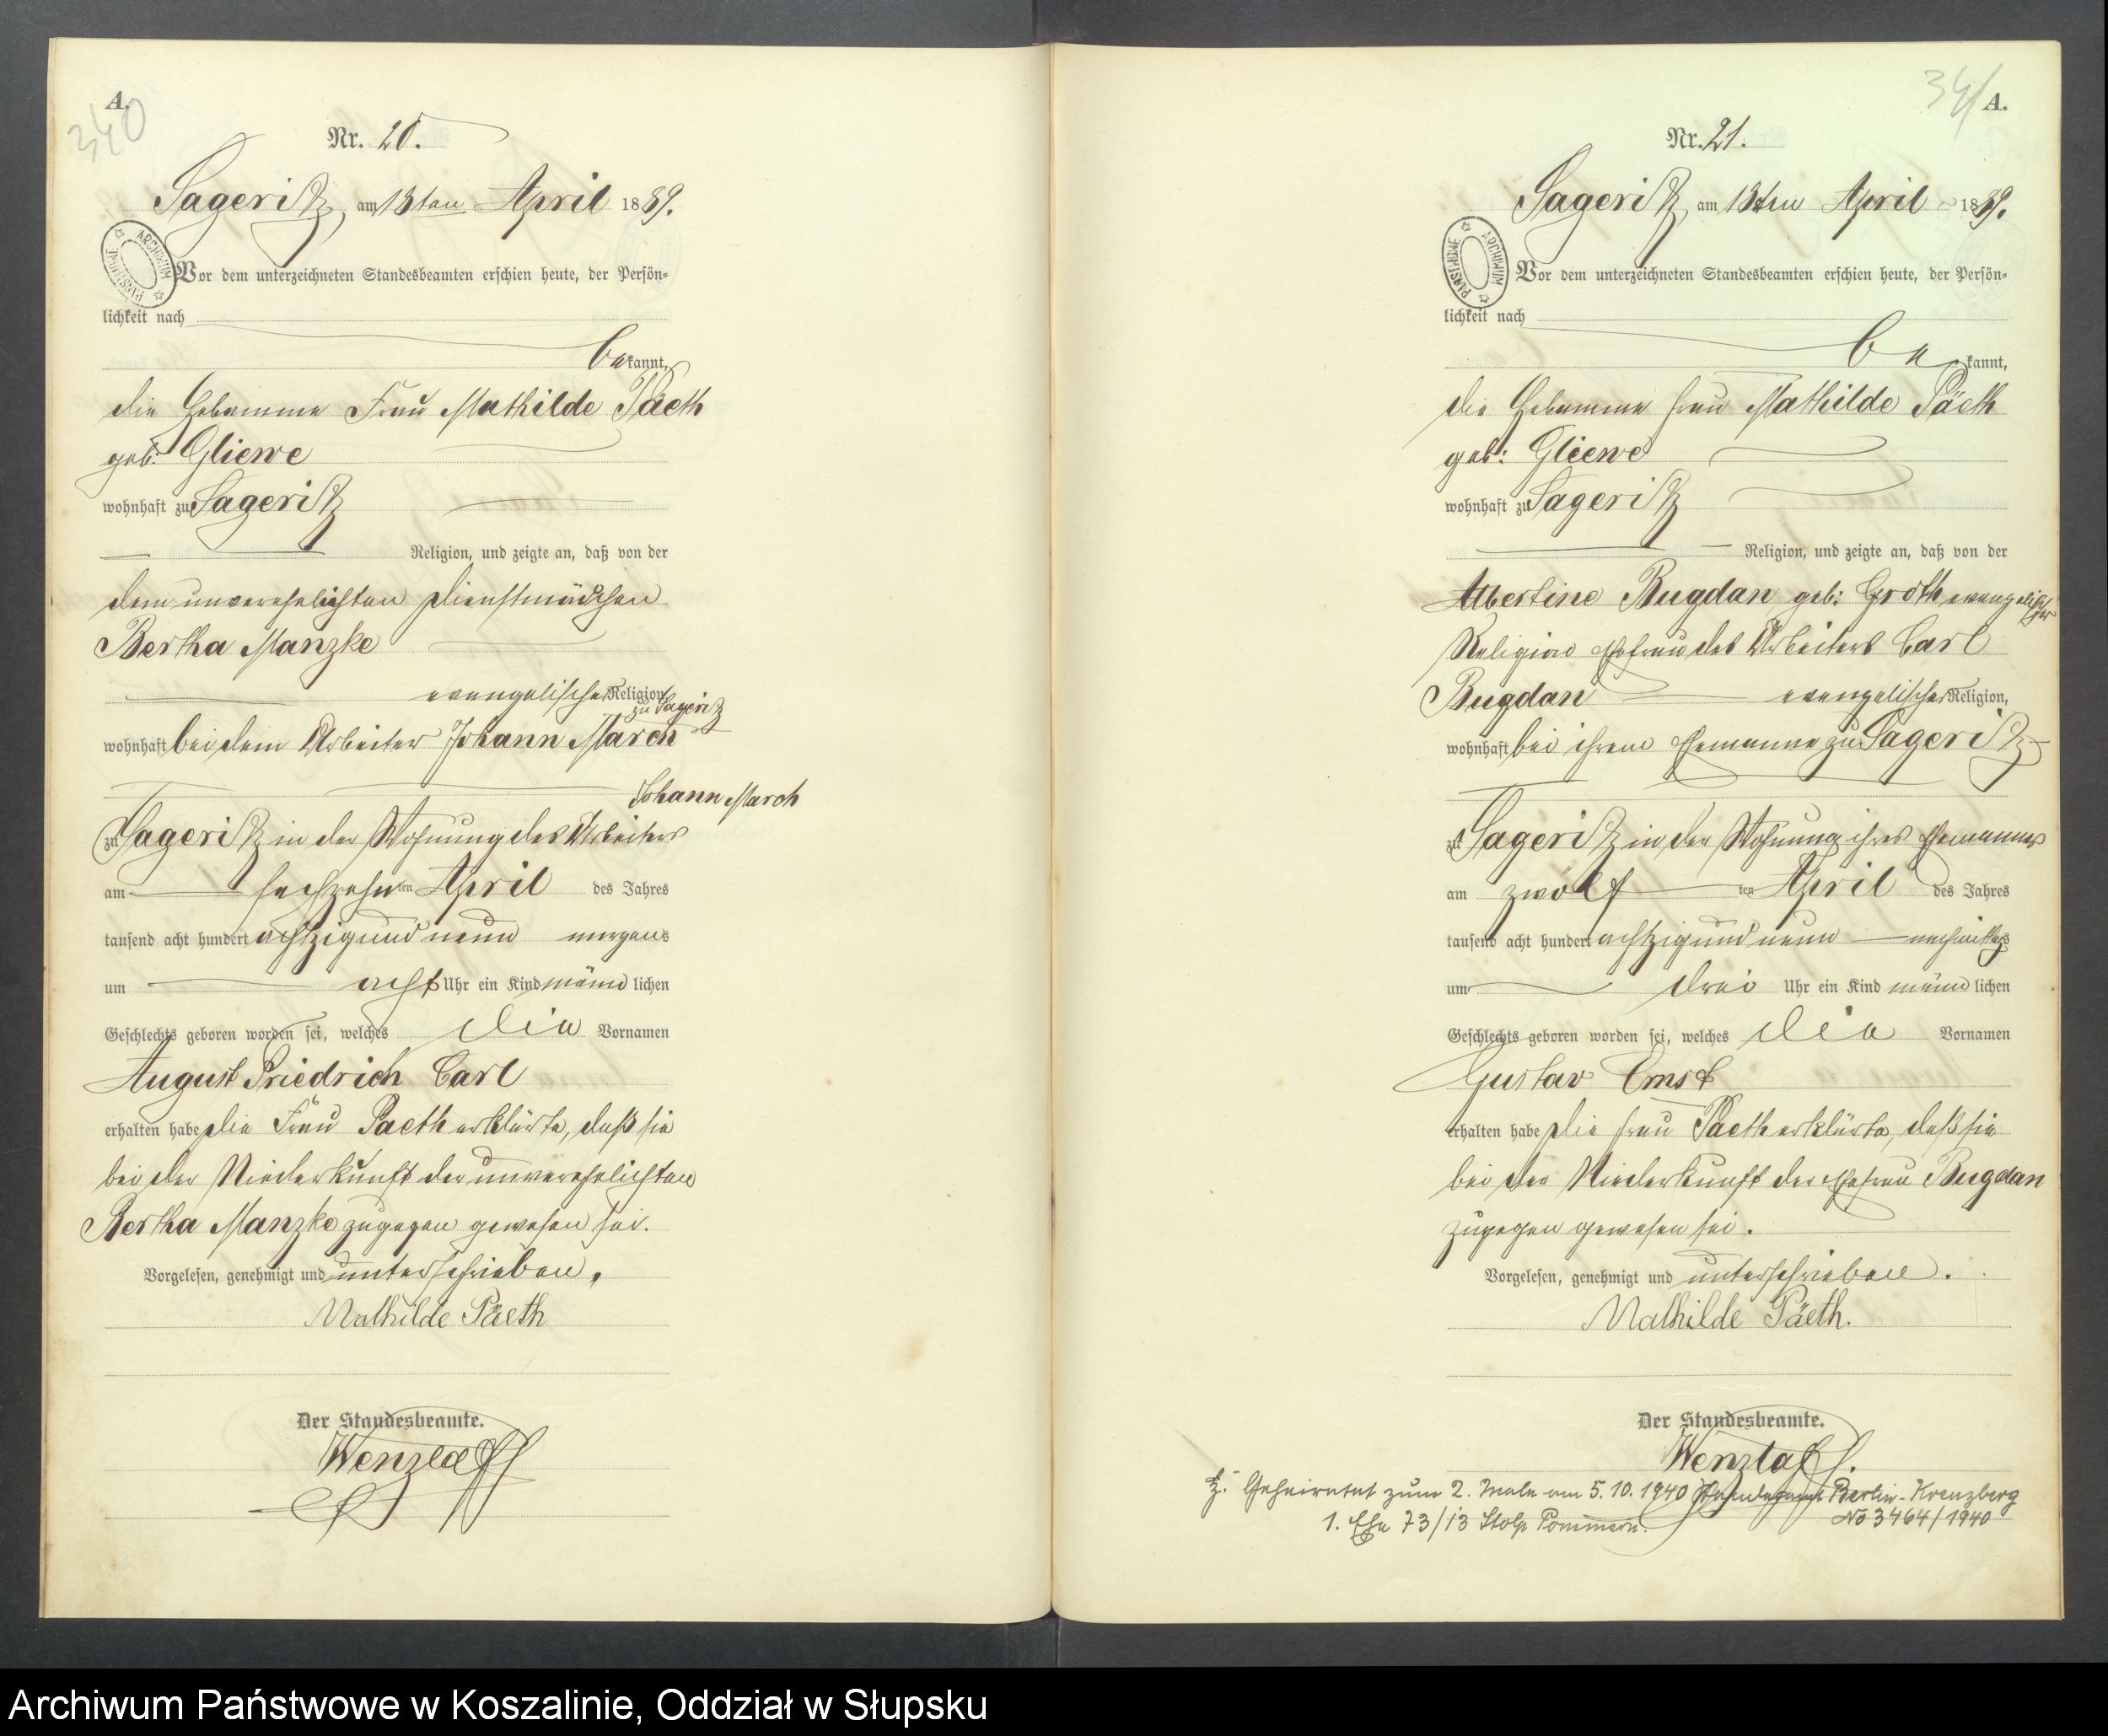 A.
340
Nr. 20.
Sageritz, am 13ten April 1889.
Vor dem unterzeichneten Standesbeamten erschien heute, der Persön-
lichkeit nach
bekannt,
die Hebamme Frau Mathilde Päeth
geb: Gliewe
wohnhaft zu Sageritz
Religion, und zeigte an, daß von der
dem unverehelichten Dienstmädchen
Bertha Manzke
evangelischer Religion,
zu Sageritz
wohnhaft bei dem Arbeiter Johann March
Johann March
zu Sageritz in der Wohnung des Arbeiters
am ten April des Jahres
tausend acht hundert achtzig und neun morgens
um acht Uhr ein Kind männlichen
Geschlechts geboren worden sei, welches die Vornamen
August Friedrich Carl
erhalten habe die Frau Paeth erklärte, daß sie
bei der Niederkunft der unverehelichten
Bertha Manzke zugegen gewesen sei.
Vorgelesen, genehmigt und unterschrieben.
Mathilde Päeth
Der Standesbeamte.
Wenzlaff
341
A.
Nr. 21.
Sageritz, am 13ten April 1889.
Vor dem unterzeichneten Standesbeamten erschien heute, der Persön-
lichkeit nach
bekannt,
die Hebamme Frau Mathilde Päeth
geb: Gliewe
wohnhaft zu Sageritz
Religion, und zeigte an, daß von der
Albertine Bugdan geb: Groth evangelischer
Religion Ehefrau des Arbeiters Carl
Bugdan evangelischer Religion,
wohnhaft bei ihrem Ehemanne zu Sageritz
zu Sageritz in der Wohnung ihres Ehemannes
am zwölf ten April des Jahres
tausend acht hundert achtzig und neun nachmittags
um drei Uhr ein Kind männlichen
Geschlechts geboren worden sei, welches die Vornamen
Gustav Ernst
erhalten habe die Frau Paeth erklärte, daß sie
bei der Niederkunft der Ehefrau Bugdan
zugegen gewesen sei.
Vorgelesen, genehmigt und unterschrieben.
Mathilde Päeth.
Der Standesbeamte.
Wenzlaff.
Geheiratet zum 2. Male am 5.10.1940 Standesamt Berlin-Kreuzberg
No 3464/1940
1. Ehe 73/13 Stolp Pommern.
ARCHIWUM PAŃSTWOWE
ARCHIWUM PAŃSTWOWE
Archiwum Państwowe w Koszalinie, Oddział w Słupsku